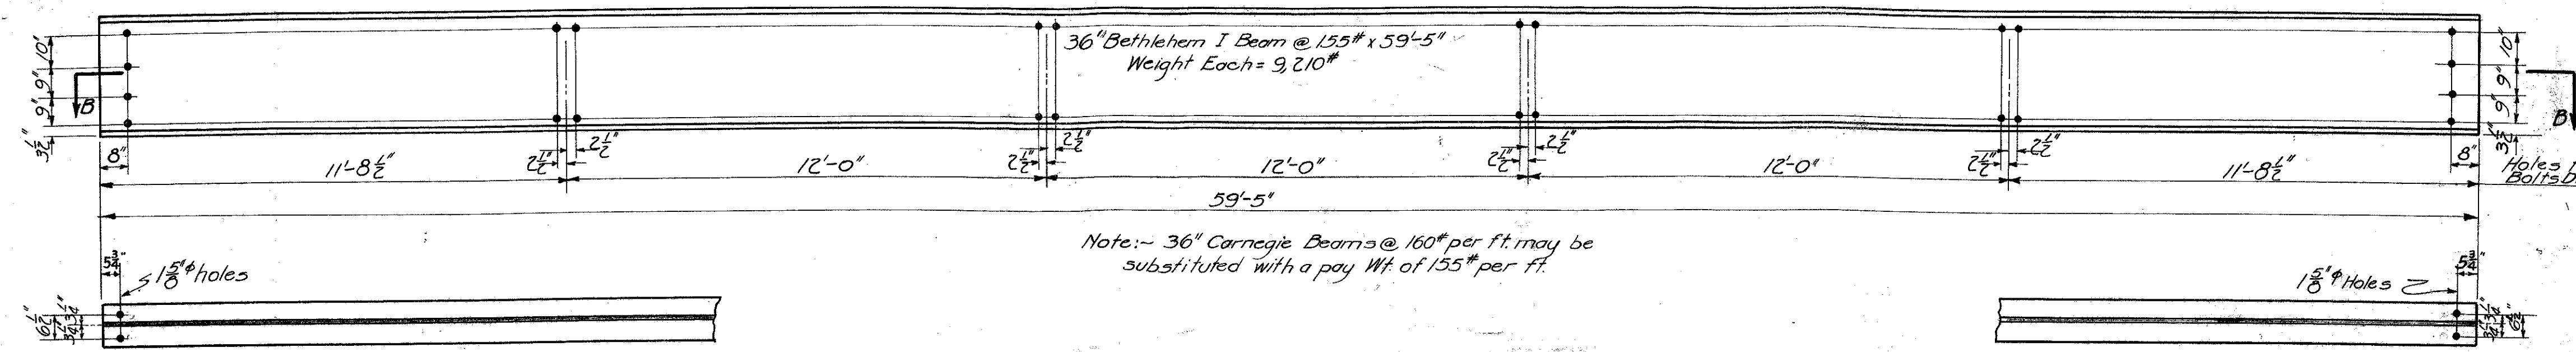 36" Bethlehem I Beam @ 155# x 59'-5"
Weight Each = 9,210#
10"
9"
9"
3 1/2"
B
8"
11'-8 1/2"
2 1/2"
2 1/2"
12'-0"
2 1/2"
2 1/2"
12'-0"
2 1/2"
2 1/2"
12'-0"
2 1/2"
2 1/2"
11'-8 1/2"
8"
10"
9"
9"
3 1/2"
B
Holes
Bolts
59'-5"
Note:- 36" Carnegie Beams @ 160# per ft. may be
substituted with a pay Wt. of 155# per ft.
5 3/4"
1 5/8"ϕ holes
6 1/2"
3 1/4"
3 1/4"
5 3/4"
1 5/8"ϕ Holes
3 1/4"
3 1/4"